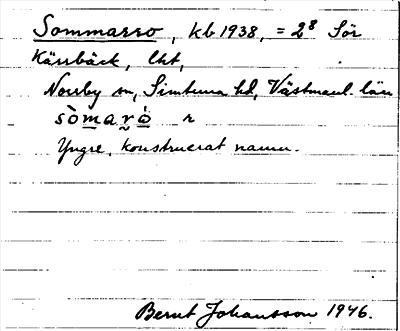 Sommarro, kb 1938, = 2⁸ Sör
Kärrbäck, lht,
Norrby sn, Simtuna hd, Västmanl. län
sòmarò r
Yngre, konstruerat namn.
Bernt Johansson 1946.